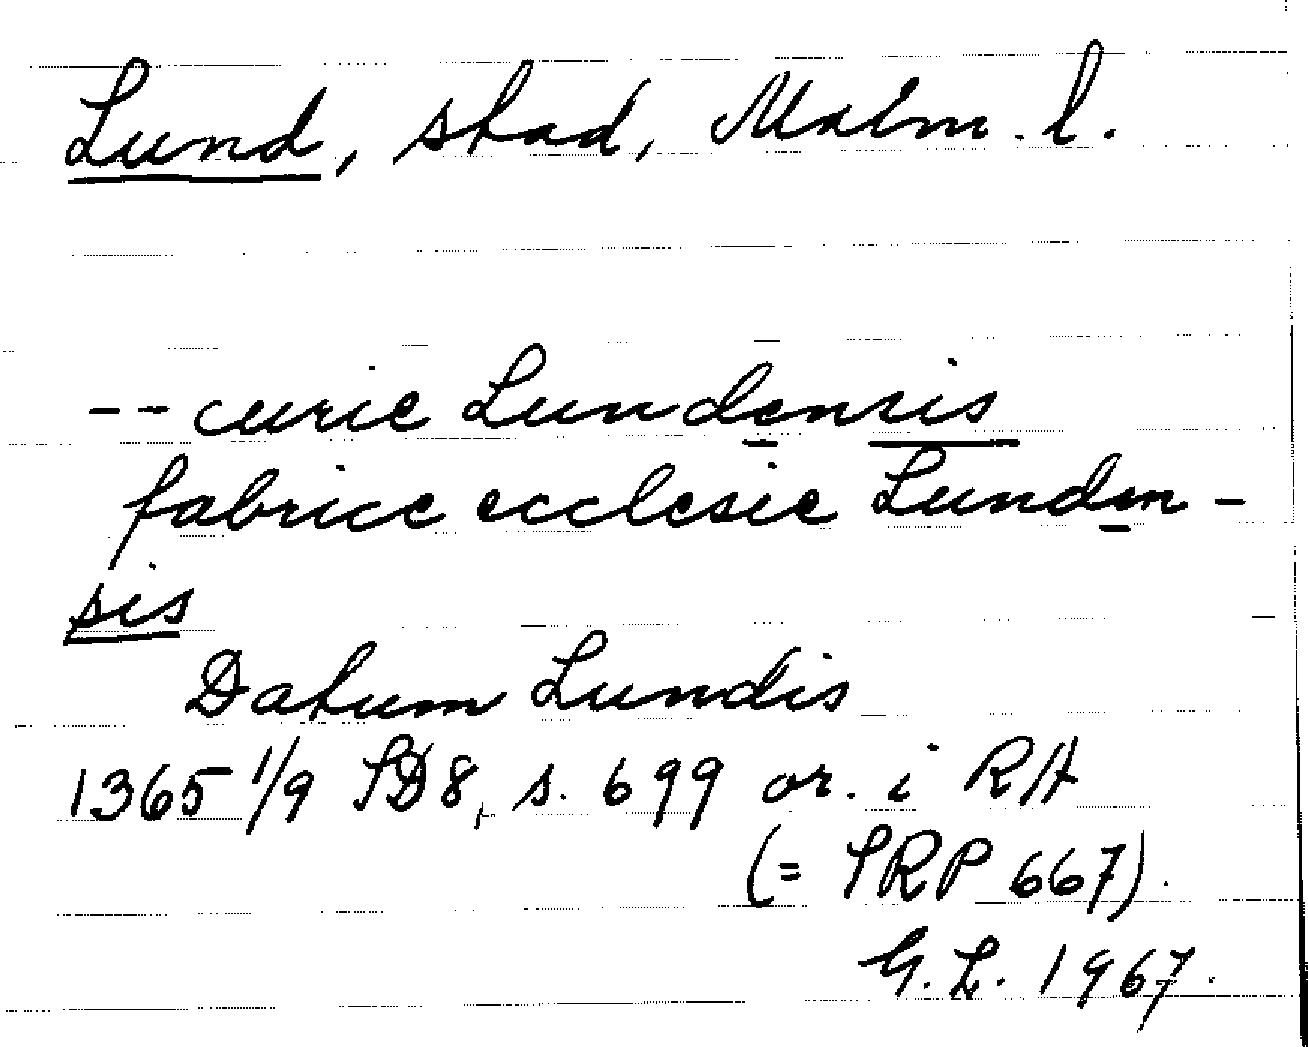 Lund, stad, Malm. l.
-- curie Lundensis
fabrice ecclesie Lunden-
sis
Datum Lundis
1365 1/9 SD8, s. 699 or. i RA
(= SRP 667).
G. L. 1967.